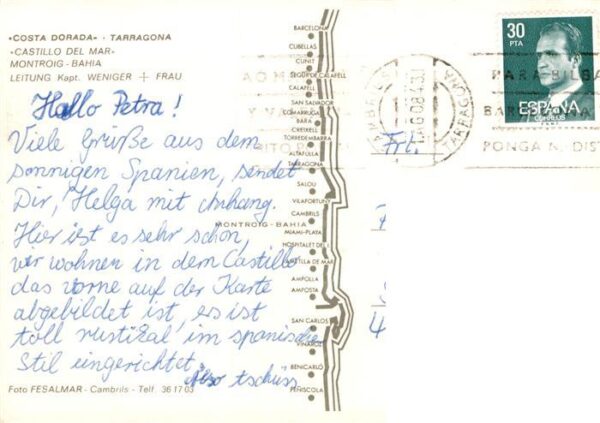 «COSTA DORADA» - TARRAGONA
«CASTILLO DEL MAR»
MONTROIG - BAHIA
LEITUNG Kapt. WENIGER + FRAU
Hallo Petra!
Viele Grüße aus dem
sonnigen Spanien, sendet
Dir, Helga mit Anhang.
Hier ist es sehr schön,
wir wohnen in dem Castillo
das vorne auf der Karte
abgebildet ist, es ist
toll rustikal im spanischen
Stil eingerichtet,
Also tschüss
Foto FESALMAR - Cambrils - Telf. 36 17 03
BARCELONA
CUBELLAS
CUNIT
SEGUR DE CALAFELL
CALAFELL
SAN SALVADOR
COMARRUGA
BARA
CREIXELL
TORREDEMBARRA
ALTAFULLA
TARRAGONA
SALOU
VILAFORTUNY
CAMBRILS
MONTROIG-BAHIA
MIAMI-PLAYA
HOSPITALET DEL I.
AMETLLA DE MAR
AMPOLLA
AMPOSTA
SAN CARLOS
VINAROZ
BENICARLO
PEÑISCOLA
30
PTA
ESPAÑA
CORREOS
TARRAGONA
PARA BILBA
PONGA N. DIST
Frl.
4